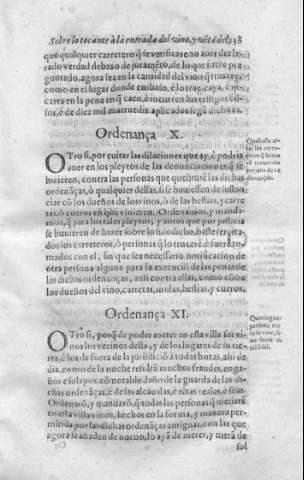 Sobre lo tocante à la entrada del vino, y vẽta del. 38
que qualquier carretero q̃ se verificare no auer decla-
rado verdad debaxo de juramẽto, de lo que fuere pre
guntado, agora sea en la cantidad del vino q̃ truxere,
como en el lugar donde embaso, è lo trae, caya, è in-
curra en la pena en q̃ caen, è incurren los testigos fal-
sos, è de diez mil marauedis aplicados segũ dicho es.
Ordenança X.
OTro si, por euitar las dilaciones que ay, è podriã
auer en los pleytos de las denunciaciones q̃ se
hizieren, contra las personas que quebrãtẽ las dichas
ordenãças, ò qualquier dellas, si se huuiessen de sustan
ciar cõ los dueños de los vinos, ò de las bestias, y carre
tas, ò cueros en que viniere. Ordenamos, y manda-
mos, q̃ para los tales pleytos, y autos que por justicia
se huuieren de hazer sobre lo suso dicho, baste ser cita-
dos los carreteros, ò personas q̃ lo traxerẽ, è fuerẽ to-
mados con el, sin que sea necessario notificacion de
otra persona alguna para la execuciõ de las penas de
las dichas ordenanças, assi contra ellas, como cõtra
los dueños del vino, carretas, mulas, bestias, y cueros.
Ordenança XI.
OTro si, porq̃ de poder meter en esta villa sin vi-
nos los vezinos della, y de los lugares de su tier
ra, è los de fuera de la juridiciõ a todas horas, assi de
dia, como de la noche resultã muchos fraudes, enga-
ños è solapos, cõ notable daño de la guarda de las di-
chas ordenãças, è de las alcaualas, è rẽtas reales, è sisas
Ordenarõ, y mandarõ, q̃ todas las personas q̃ metierẽ
en esta villa vinos, hechos en la forma, y manera per-
mitida por las dichas ordenãças antiguas, con las que
agora se añaden de nueuo, lo ayã de meter, y metã de
sol